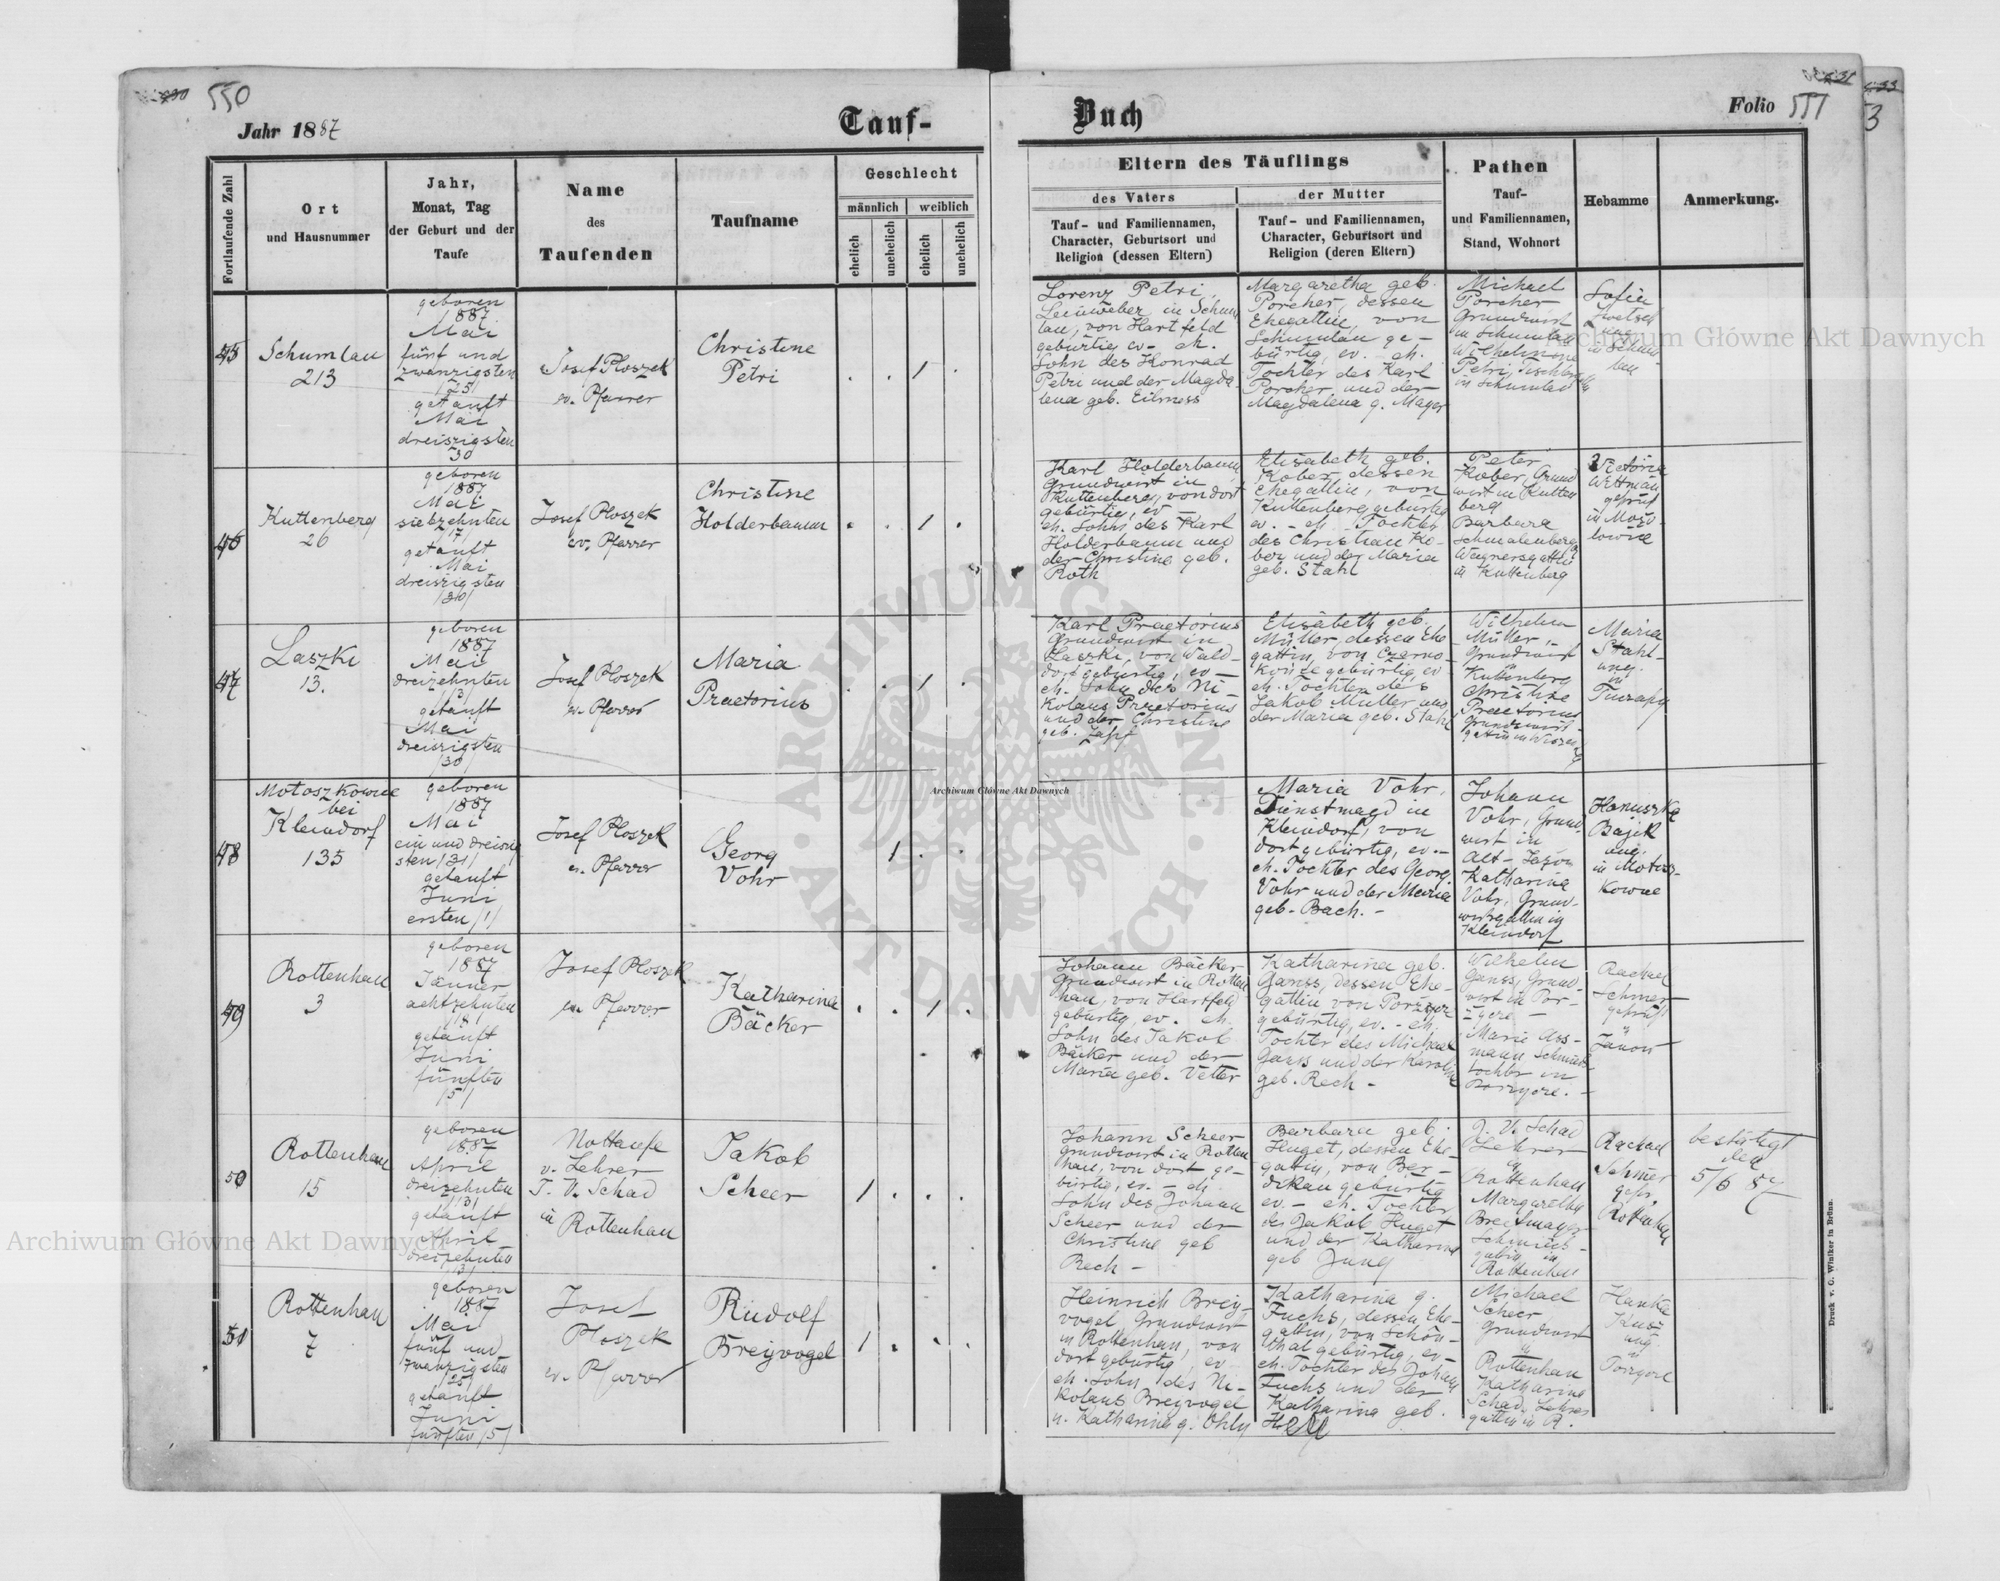 550
Jahr 1887
Tauf-
Buch
Folio 551
3
Fortlaufende Zahl
Ort
und Hausnummer
Jahr,
Monat, Tag
der Geburt und der
Taufe
Name
des
Taufenden
Taufname
Geschlecht
männlich
weiblich
ehelich
unehelich
ehelich
unehelich
Eltern des Täuflings
des Vaters
Tauf- und Familiennamen,
Character, Geburtsort und
Religion (dessen Eltern)
der Mutter
Tauf- und Familiennamen,
Character, Geburtsort und
Religion (deren Eltern)
Pathen
Tauf-
und Familiennamen,
Stand, Wohnort
Hebamme
Anmerkung.
45
Schumlau
213
geboren
1887
Mai
fünf und
zwanzigsten
/25/
getauft
Mai
dreiszigsten
30
Josef Ploszek
ev. Pfarrer
Christine
Petri
. . 1 .
Lorenz Petri,
Leinweber in Schum
lau, von Hartfeld
gebürtig ev. ch.
Sohn des Konrad
Petri und der Magda
lena geb.
Margaretha geb.
Porcher, dessen
Ehegattin, von
Schumlau ge-
bürtig, ev. ch.
Tochter des Karl
Porcher und der
Magdalena g. Mayer
Michael
Porcher
Grundwirt
in Schumlau
Wilhelmine
Petri,
in Schumlau
Sofia
ung.
in Schum
lau
46
Kuttenberg
26
geboren
1887
Mai
siebzehnten
/17/
getauft
Mai
dreiszigsten
/30/
Josef Ploszek
ev. Pfarrer
Christine
Holderbaum
. . 1 .
Karl Holderbaum,
Grundwirt in
Kuttenberg, von dort
gebürtig, ev -
ch. Sohn des Karl
Holderbaum und
der Christine geb.
Roth
Elisabeth geb.
Kober, dessen
Ehegattin, von
Kuttenberg gebürtig
ev. - ch Tochter
des Christian Ko-
ber und der Maria
geb. Stahl
Peter
Kober, Grund
wirt in Kutten
berg
Barbara
Schmalenberg
Wagnersgattin
in Kuttenberg
Victoria
Wittman
geprüf
in Mosz
kowce
47
Laszki
13.
geboren
1887
Mai
dreizehnten
/13/
getauft
Mai
dreiszigsten
/30/
Josef Ploszek
ev. Pfarrer
Maria
Praetorius
. . 1 .
Karl Praetorius
Grundwirt in
Laszki, von Wald-
dorf gebürtig, ev -
ch. Sohn des Ni-
kolaus Praetorius
und der Christine
geb. Zapf
Elisabeth geb.
Müller, dessen Ehe
gattin, von Czerno-
konze gebürtig, ev
ch. Tochter des
Jakob Müller und
der Maria geb. Stahl
Wilhelm
Müller,
Grundwirt
Kuttenberg
Christine
Praetorius
Grundwirts-
gattin in
Maria
Stahl
ung.
in
Tuczapy
48
Motoszkowce
bei
Kleindorf
135
geboren
1887
Mai
ein und dreiszig
sten /31/
getauft
Juni
ersten /1/
Josef Ploszek
ev. Pfarrer
Georg
Vohr
1 . .
Maria Vohr,
Dienstmagd in
Kleindorf, von
dort gebürtig, ev. -
ch. Tochter des Georg
Vohr und der Maria
geb. Bach. -
Johann
Vohr, Grund
wirt in
Alt-Jazow
Katharina
Vohr, Grund-
wirtsgattin in
Kleindorf
Hanuszka
Bajek
ung.
in Motosz-
kowce
49
Rottenhan
3
geboren
1887
Jänner
achtzehnten
/18/
getauft
Juni
fünften
/5/
Josef Ploszek
ev. Pfarrer
Katharina
Bäcker
. . 1 .
Johann Bäcker
Grundwirt in Rotten
han, von Hartfeld
gebürtig, ev. ch.
Sohn des Jakob
Bäcker und der
Maria geb. Vetter
Katharina geb.
Ganss, dessen Ehe-
gattin von Porzycze
gebürtig, ev. - ch.
Tochter des Michael
Ganss und der Karoline
geb. Rech -
Wilhelm
Ganss, Grund-
wirt in Por-
zycze -
Marie Ass-
mann Schmieds
tochter in
Porzycze. -
Rachael
Schmer
geprüft
in
Janow
50
Rottenhan
15
geboren
1887
April
dreizehnten
/13/
getauft
April
dreizehnten
/13/
Nottaufe
v. Lehrer
J. V. Schad
in
Rottenhan
Jakob
Scheer
1 . . .
Johann Scheer
Grundwirt in Rotten
han, von dort ge-
bürtig, ev. - ch.
Sohn des Johann
Scheer und der
Christine geb
Rech -
Barbara geb.
Huget, dessen Ehe
gattin, von Ber-
dikau gebürtig
ev. - ch. Tochter
des Jakob Huget
und der Katharine
geb Jung
J. V. Schad
Lehrer
in
Rottenhan
Margaretha
Breitmayer
Schmieds-
gattin in
Rottenhan
Rachael
Schmer
gepr.
Rottenhan
bestätigt
den
5/6 87
51
Rottenhan
7
geboren
1887
Mai
fünf und
zwanzigsten
/25/
getauft
Juni
fünften /5/
Josef
Ploszek
ev. Pfarrer
Rudolf
Breyvogel
1 . . .
Heinrich Brey-
vogel Grundwirt
in Rottenhan, von
dort gebürtig, ev-
ch. Sohn des Ni-
kolaus Breyvogel
u. Katharina g. Ohly
Katharina g.
Fuchs, dessen Ehe-
gattin, von Schön-
thal gebürtig, ev-
ch. Tochter des Johann
Fuchs und der
Katharina geb.
Hell
Michael
Scheer
Grundwirt
in
Rottenhan
Katharina
Schad, Lehrers
gattin in R.
Hanka
ung
in
Porzycze
Druck v. G. Winiker in Brünn.
Archiwum Główne Akt Dawnych
Archiwum Główne Akt Dawnych
Archiwum Główne Akt Dawnych
ARCHIWUM GŁÓWNE · AKT DAWNYCH ·